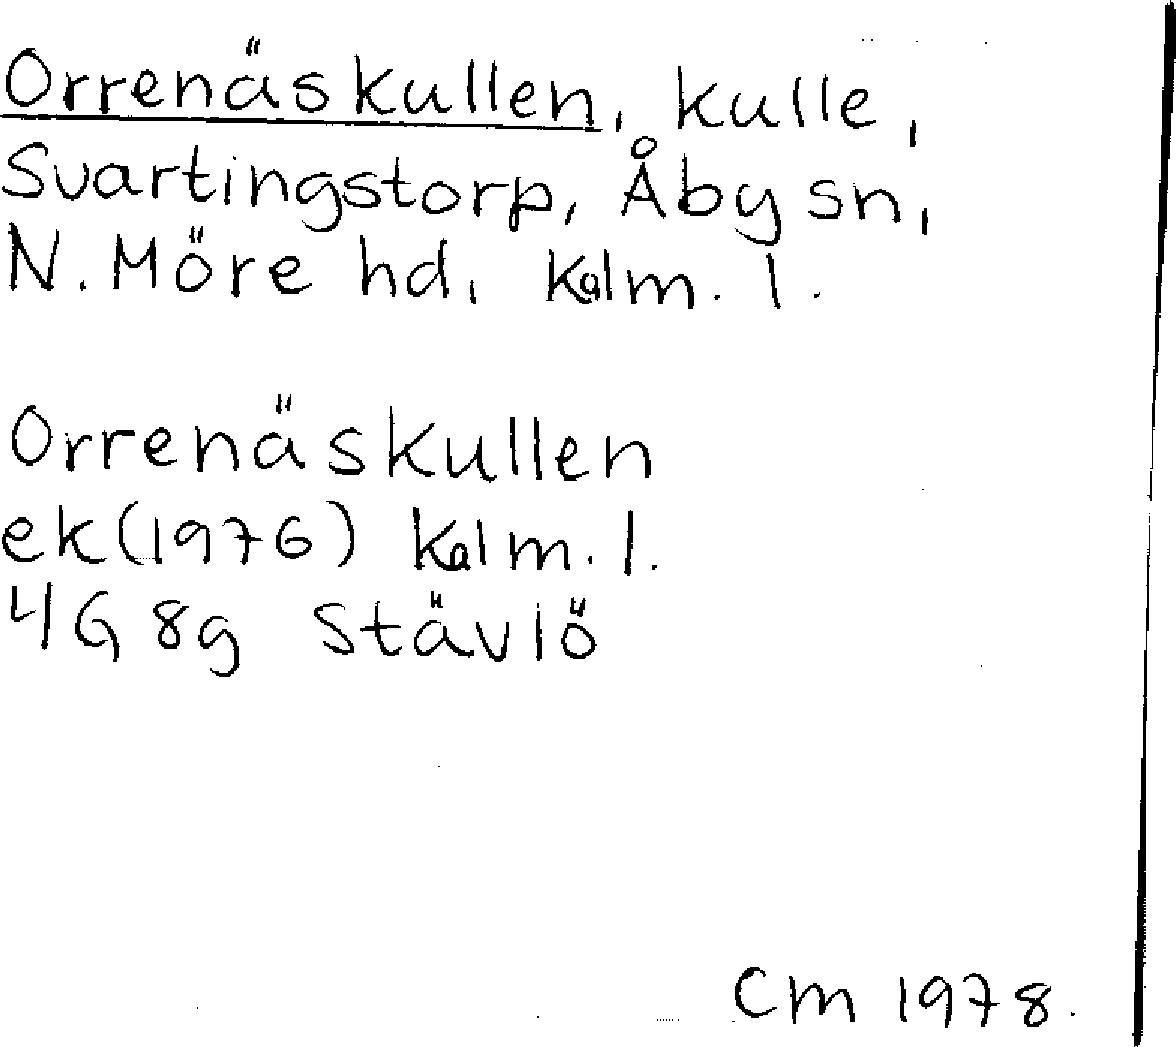 Orrenäskullen, kulle,
Svartingstorp, Åby sn,
N. Möre hd, Kalm. l.
Orrenäskullen
ek(1976) Kalm. l.
4G 8g Stävlö
Cm 1978.